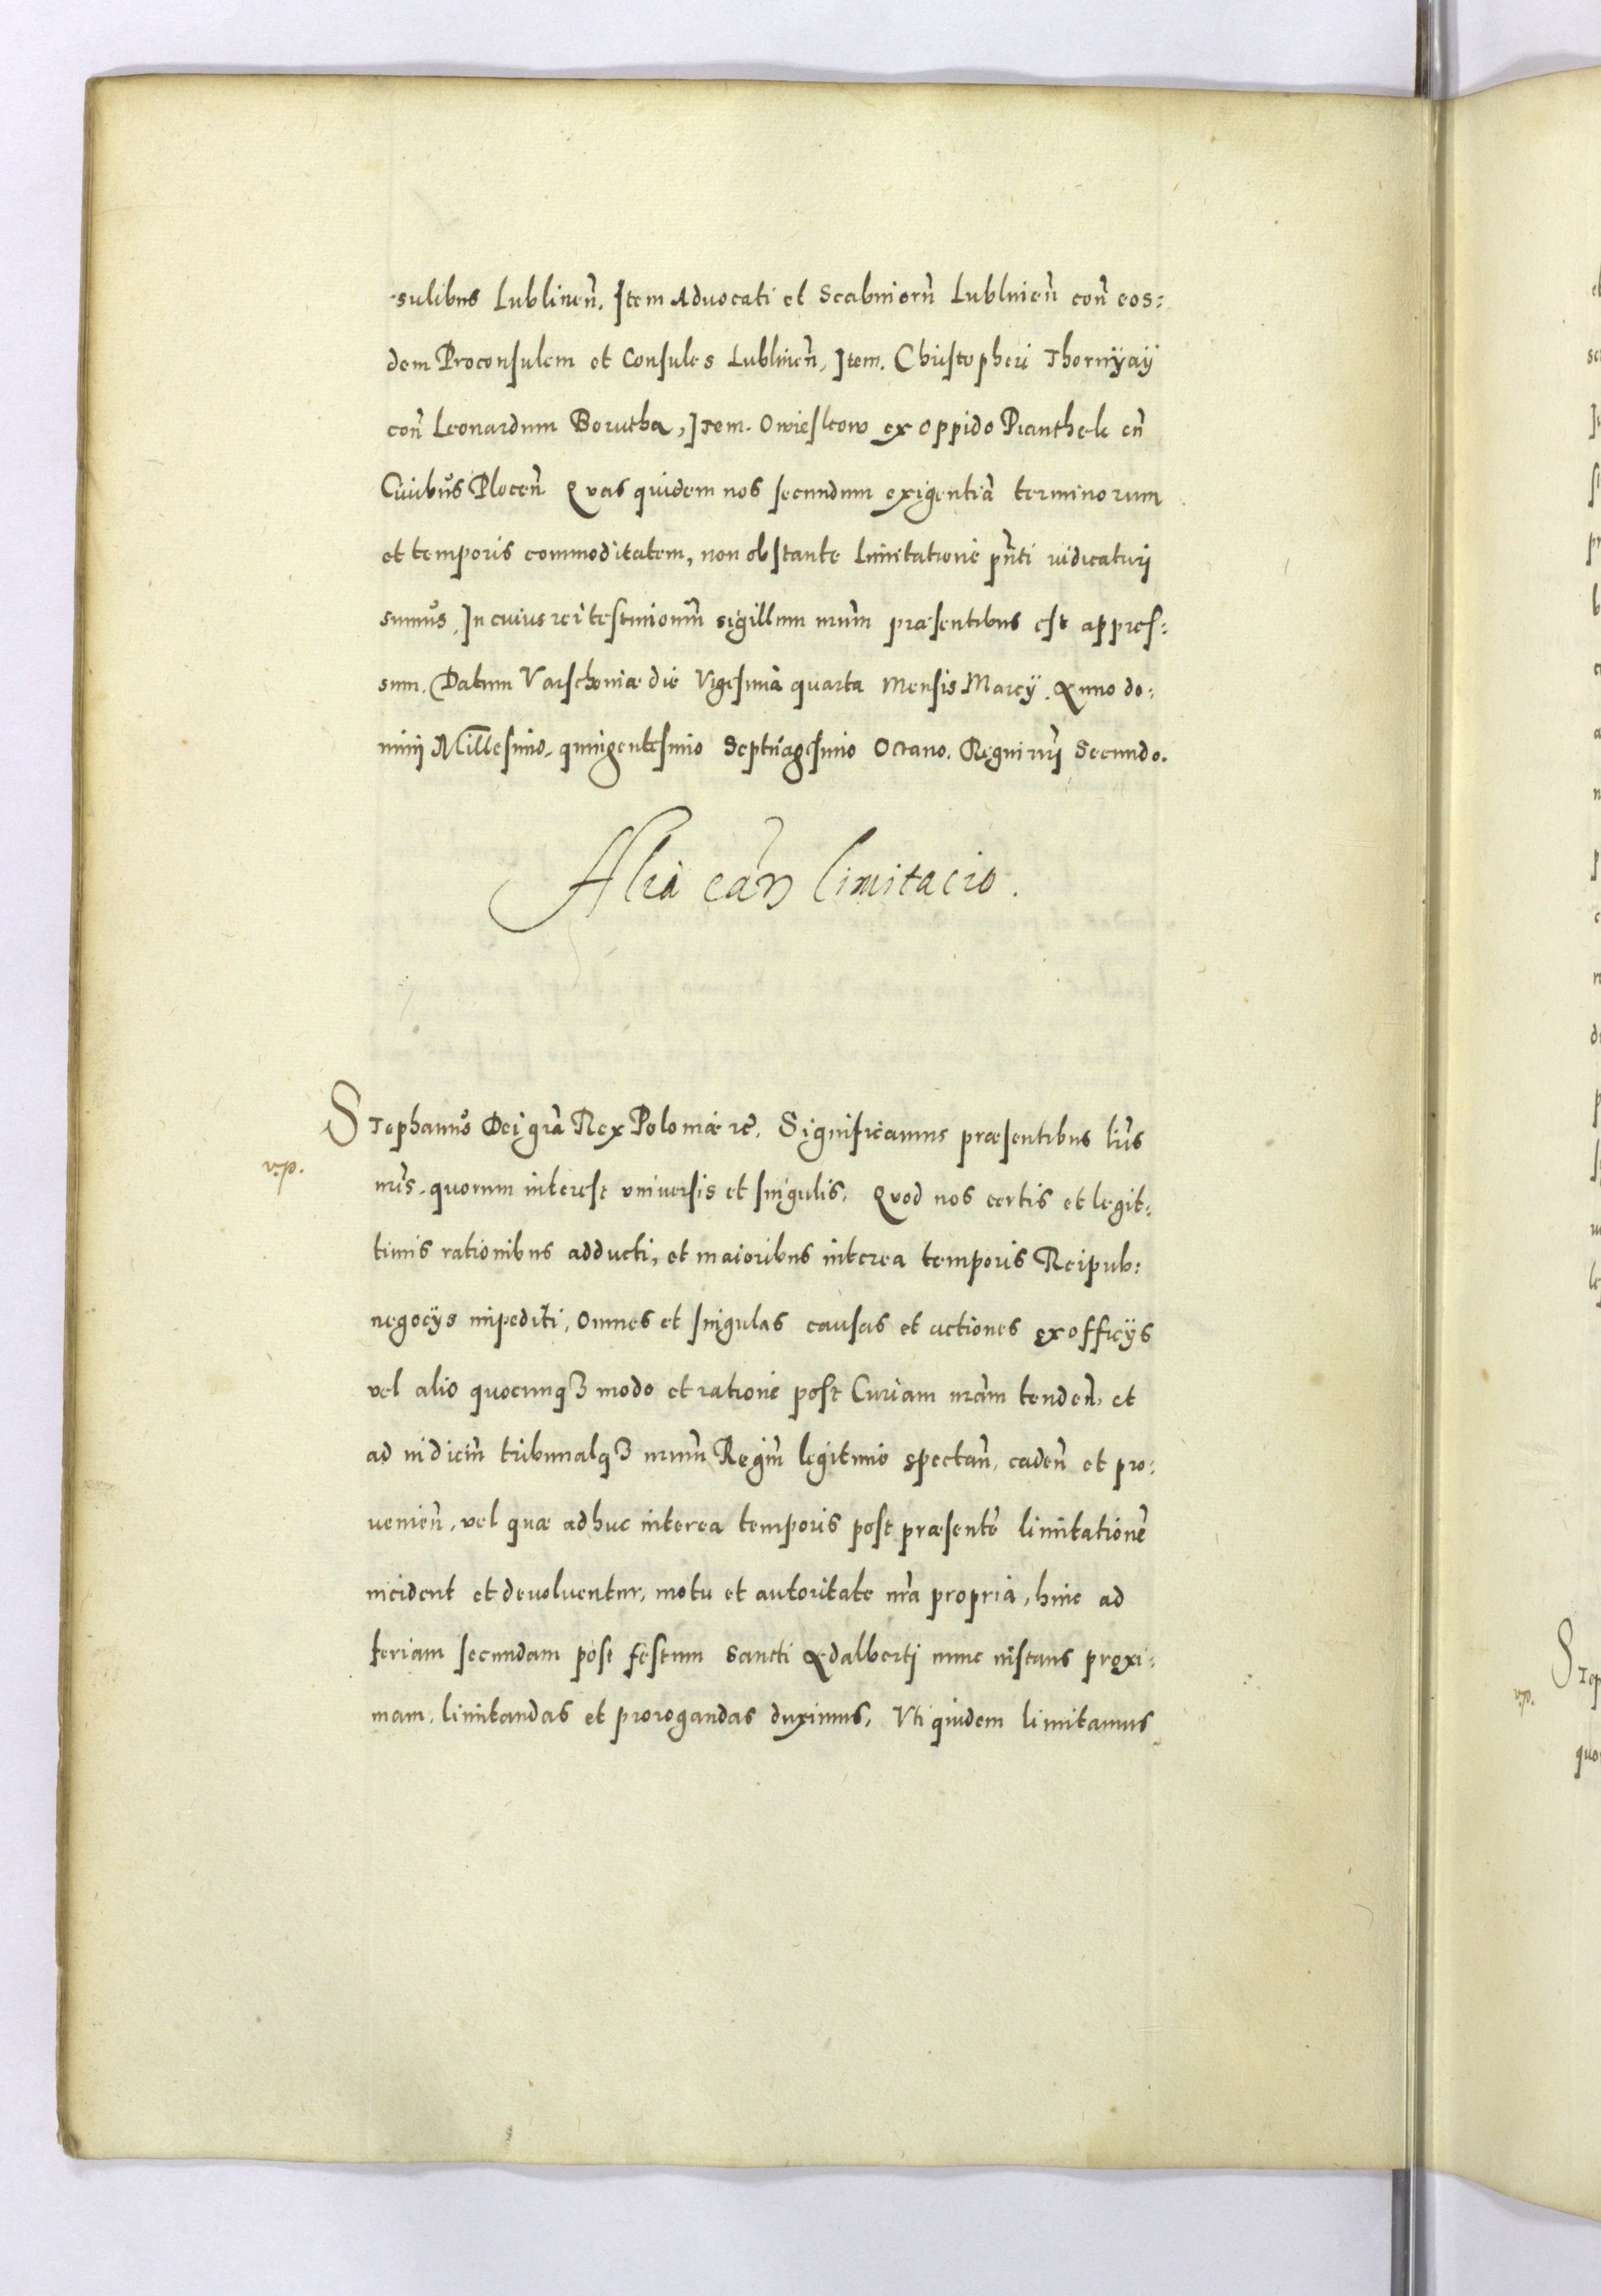 sulibus Lublineñ. Item Advocati et Scabiniorũ Lublinieñ coñ eos:
dem Proconsulem et Consules Lublineñ, Item. Christopheri Thornÿaÿ
coñ Leonardum Borutha, Item. Owieskow ex oppido Pianthek cũ
Ciuibus Poloceñ Quas quidem nos secundum exigentiã terminorum
et temporis commoditatem, non obstante limitatione pñti iudicaturi
sumus, In cuius rei testimoniũ sigillum nrũm præsentibus est appres:
sum. Datum Varschouiæ die Vigesima quarta Mensis Marcÿ. Anno do:
mini Millesimo, quingentesimo Septuagesimo Octauo. Regni nrĩ Secundo.
Alia cãrũ limitacio.
Stephanus Dei grã Rex Poloniæ rc̃. Significamus præsentibus lrĩs
v.p.
nrĩs, quorum interest vniuersis et singulis. Quod nos certis et legit:
timis rationibus adducti, et maioribus interea temporis Reipub:
negocÿs impediti, Omnes et singulas causas et actiones ex officÿs
vel alio quocunqȝ modo et ratione post Curiam nrãm tendeñ, et
ad iudiciũ tribunalqȝ nrũm Regiũ legitimo spectañ, cadeñ et pro:
venieñ, vel quæ adhuc interea temporis post præsentẽ limitationẽ
incident et devoluentur, motu et autoritate nrã propria, hinc ad
feriam secundam post festum Sancti Adalberti nunc instans proxi:
mam, limitandas et prorogandas duximus, Vti quidem limitamus